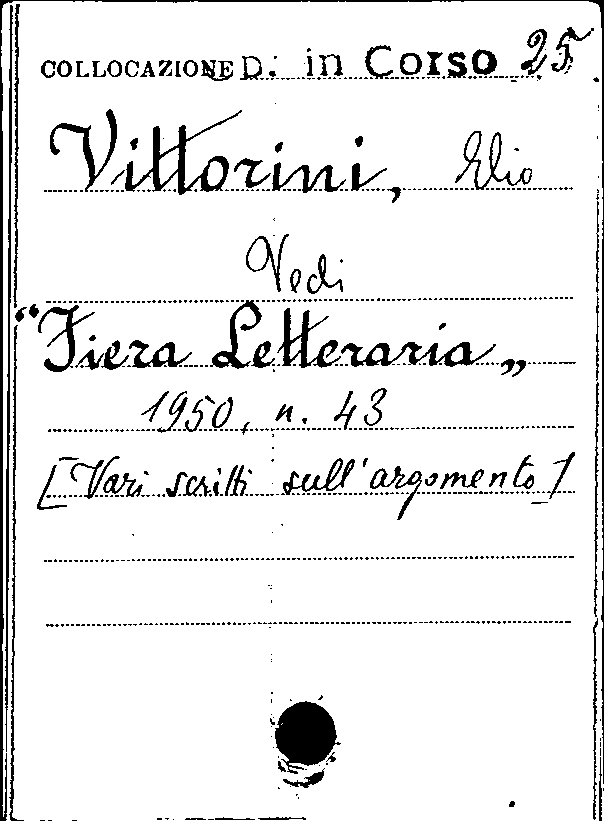 COLLOCAZIONE D. in Corso 25
Vittorini, Elio
Vedi
“Fiera Letteraria„
1950, n. 43
[Vari scritti sull'argomento]